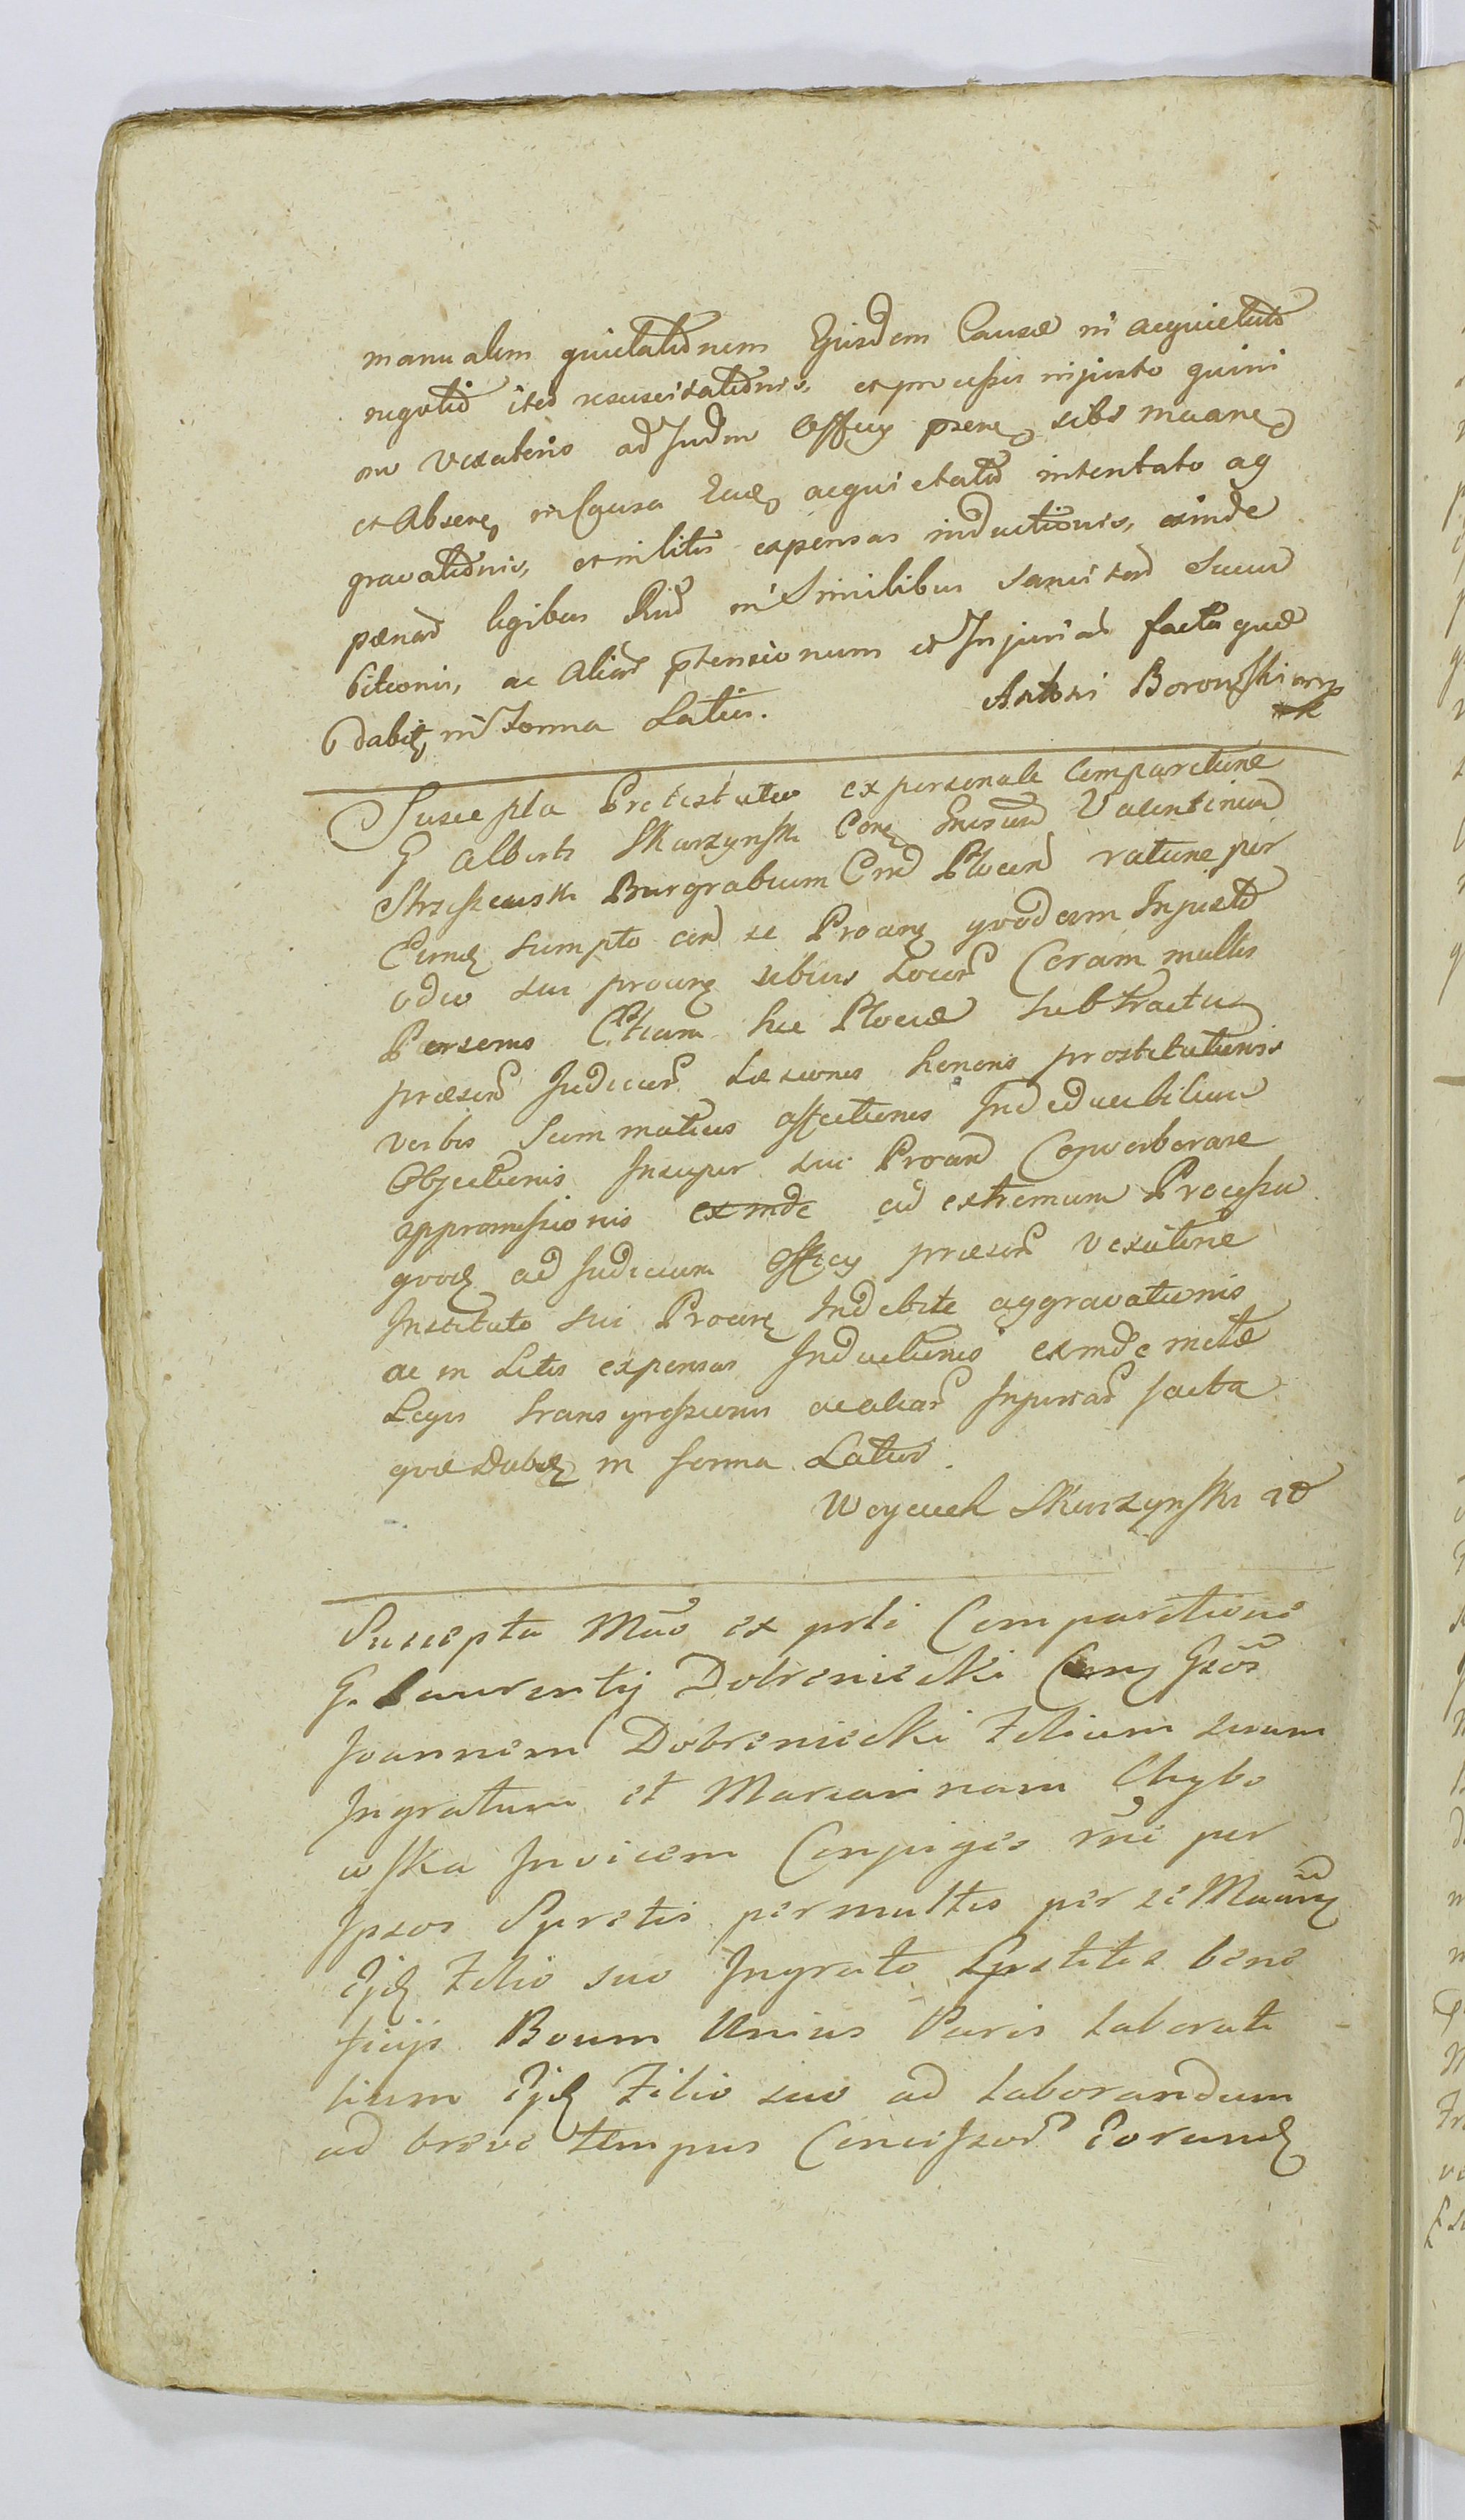 manualem quietationem Ejusdem Causæ in acquietato
negotio iteo resuscitationis, et processu injusto quini
mo vexatorio ad Judm Officii psens sibi maane
et absens in Causa Eade acquietata intentato ag
gravationis, et in litis expensas inductionis, exinde
pænard legibus Rni in Similibus sancitard Succu
bitionis, ac aliard ptensionum et Injuriard facta quæ
dabit in Forma Latius. Antoni Borowski mp
Suscepta Protestatio ex personali Comparitione
G Alberti Skarzynski Cone Grsum Valentinum
Strzeszewski Burgrabium Crm Plocen ratione per
Eund sumpto cerd se Proane quodam Injusto
odio sui proane sibivis Locord Coram multis
Personis Etiam hic Plociæ subtractu
præsent Judiciord Læsionis honoris prostitutionis
verbis summatius affectionis Indeducibilium
Objectionis Insuper sui Proand Converberare
appromissionis exinde ad extremum Processu
quoq ad Judicium Officii præsent vexatorie
Instituto sui Proane Indebite aggravationis
ac in Litis expensas Inductionis exinde metæ
Legis transgressionis ac aliard Injuriard facta
quæ Dabit in forma Latius.
Woyciech Skarzynski id
Suscepta Mao ex prli Comparitione
G. Laurentij Dobrenieckі Cone Gsos
Joannem Dobrenieckі Filium suum
Ingratum et Mariannam Chybo
wska Invicem Conjuges rne per
Ipsos Spretis permultis per se Maane
Ejd Filio suo Ingrato Pstitis bene
ficijs Boum Unius Paris Laborati
lium Ejd Filio suo ad Laborandum
ad breve tempus Concessord Eorund